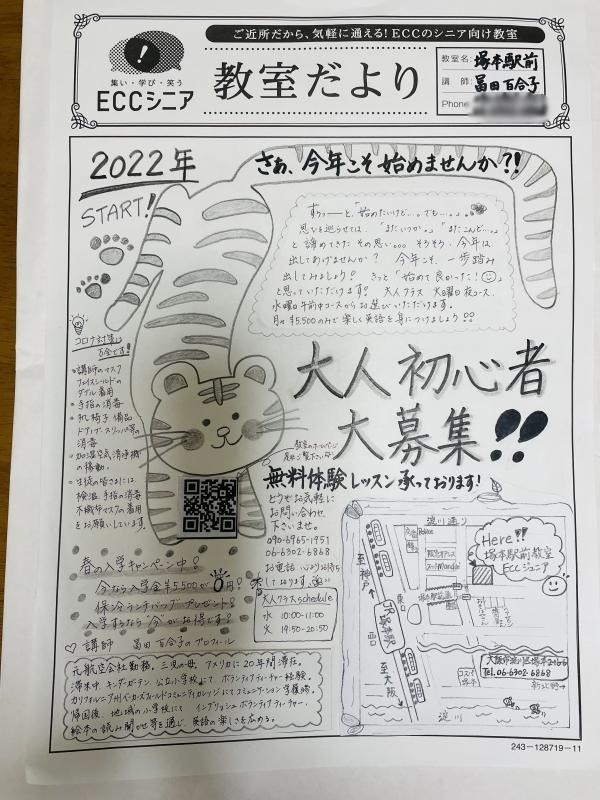 ご近所だから、気軽に通える!ECCのシニア向け教室
集い・学び・笑う
ECCシニア
教室だより
教室名: 塚本駅前
講師: 冨田百合子
Phone:
2022年
START!
さぁ、今年こそ始めませんか?!
すうっーと、「始めたいけど…。でも…。」
思いを巡らせては、「またいつか。」「またこんど…。」
と諦めてきたその思い。。。そろそろ、今年は
出してあげませんか? 今年こそ、一歩踏み
出してみましょう? きっと「始めて良かった!」
と思っていただけます! 大人クラス 火曜日夜コース、
水曜日午前中コースからお選びいただけます。
月々¥5,500のみで楽しく英語を身につけましょう!!
コロナ対策は
万全です!
・講師のマスク
フェイスシールドの
ダブル着用
・手指の消毒
・机 椅子 備品
ドアノブ、スリッパ等の
消毒
・加湿空気清浄機
の稼動。
・生徒の皆さまには、
検温、手指の消毒
不織布マスクの着用
をお願いしています。
大人初心者
大募集!!
教室のホームページ
無料体験レッスン承っております!
どうぞお気軽に
お問い合わせ
下さいませ。
090-6965-1951
06-6302-6868
お電話、心よりお待ち
しております。
大人クラスschedule
水 10:00-11:00
火 19:50-20:50
春の入学キャンペーン中!
今なら入学金¥5,500が0円!
保冷ランチバッグプレゼント!
入学するなら"今"がお得です!
♡講師 冨田百合子のプロフィール
元航空会社勤務。三児の母。アメリカに20年間滞在。
滞米中、キンダーガーテン、公立小学校にて、ボランティアティーチャー経験。
カリフォルニア州ベーカーズフィールドコミュニティカレッジにてコミュニケーション学履修。
帰国後、地域の小学校にて イングリッシュボランティアティーチャー。
絵本の読み聞かせ等を通じ、英語の楽しさを広める。
淀川通り
Here!!
塚本駅前教室
ECCジュニア
至神戸
JR塚本駅
東
西口
至大阪
コスパ
塚本
Tel.06-6302-6868
淀川
243-128719-11